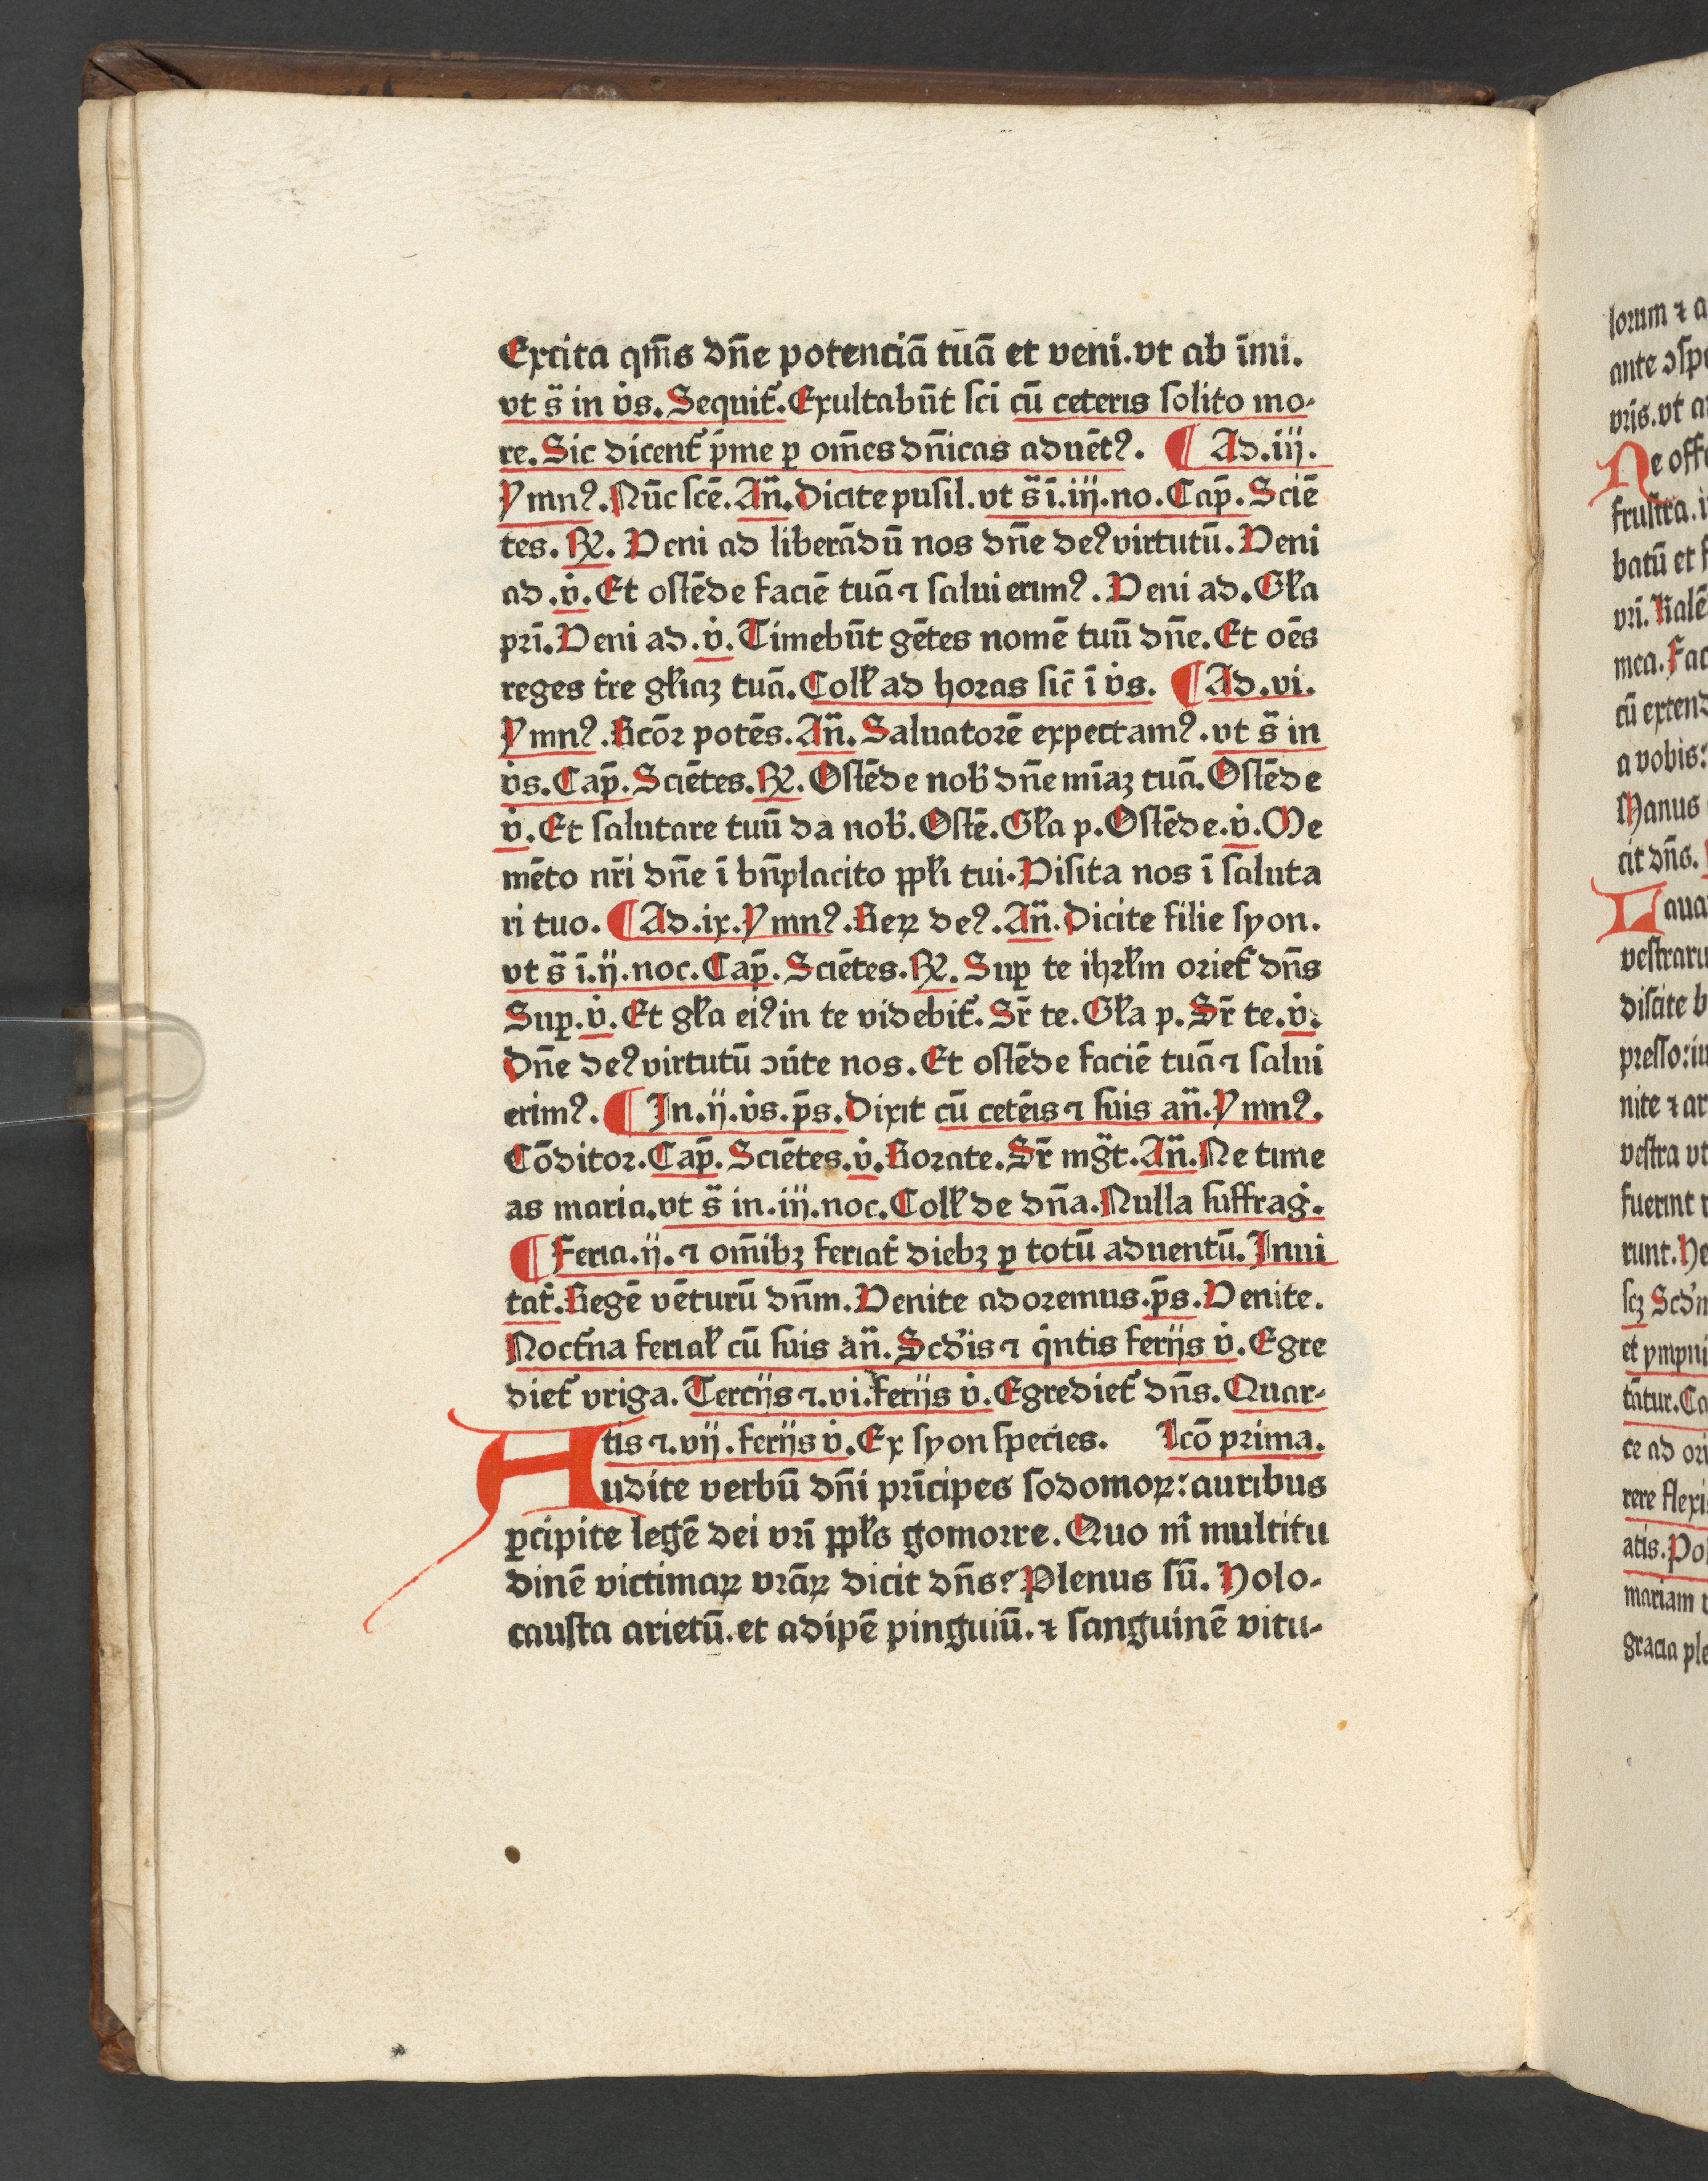 Excita qm̄s dn̄e potenciā tuā et veni.vt ab īmi.
vt s̄ in v̇s. Sequit᷑. Exultabūt sci cū ceteris solito mo-
re. Sic dicent᷑ p̄me ꝑ om̄es dn̄icas aduētꝰ. ¶ Ad.iij.
Ymnꝰ. Nūc scē. An̄. Dicite pusil. vt s̄ ī.iij.no. Cap̄. Sciē
tes. ℟. Veni ad liberādū nos dn̄e deꝰ virtutū. Veni
ad .v̇. Et ostēde faciē tuā ⁊ salui erimꝰ. Veni ad. Gl̄a
pr̄i. Veni ad .v̇. Timebūt gētes nomē tuū dn̄e. Et oēs
reges t̄re gl̄iaꝫ tuā. Coll̄ ad horas sic̄ ī v̇s. ¶ Ad.vi.
Ymnꝰ. Rcōr potēs. An̄. Saluatorē expectamꝰ. vt s̄ in
v̇s. Cap̄. Sciētes. ℟. Ostēde nob̄ dn̄e mīaꝫ tuā. Ostēde
v̇. Et salutare tuū da nob̄. Ostē. Gl̄a p. Ostēde. v̇. Me
mēto nr̄i dn̄e ī bn̄placito ppl̄i tui. Visita nos ī saluta
ri tuo. ¶ Ad.ix. Ymnꝰ. Reꝝ deꝰ. An̄. Dicite filie syon.
vt s̄ ī.ij.noc. Cap̄. Sciētes. ℟. Suꝑ te ihrl̄m oriet᷑ dn̄s
Suꝑ. v̇. Et gl̄a eiꝰ in te videbit᷑. Sr̄ te. Gl̄a p. Sr̄ te. v̇.
Dn̄e deꝰ virtutū ↄūte nos. Et ostēde faciē tuā ⁊ salui
erimꝰ. ¶ In.ij.v̇s. p̄s. Dixit cū cetēis ⁊ suis an̄. Ymnꝰ.
Cōditor. Cap̄. Sciētes. v̇. Rorate. Sr̄ mg̃t. An̄. Ne time
as maria. vt s̄ in.iij.noc. Coll̄ de dn̄a. Nulla suffraġ.
¶ Feria.ij. ⁊ om̄ibꝫ feriat᷑ diebꝫ ꝑ totū aduentū. Inui
tat᷑. Regē vēturū dn̄m. Venite adoremus. p̄s. Venite.
Noct᷑na ferial̄ cū suis an̄. Scd̄is ⁊ q̇ntis ferijs v̇. Egre
diet᷑ vriga. Tercijs ⁊.vi. ferijs v̇. Egrediet᷑ dn̄s. Quar-
tis ⁊.vij. ferijs v̇. Ex syon species. Lcō prima.
Audite verbū dn̄i prīcipes sodomoꝝ: auribus
ꝑcipite legē dei vr̄i ppl̄s gomorre. Quo m̄ multitu
dinē victimaꝝ vrāꝝ dicit dn̄s? Plenus sū. Holo-
causta arietū. et adipē pinguiū. ⁊ sanguinē vitu-
lorum ⁊ a
ante ↄspe
vris. vt a
Ne offe
frustra. i
batū et f
vr̄i. Kalē
mea. Fac
cū extend
a vobis:
Manus
cit dn̄s.
Laua
vestraru
discite b
presso: iu
nite ⁊ ar
vestra vt
fuerint
runt. He
scꝫ Scd̄n
et ympni
tāt᷑ur. Ca
ce ad ori
rere flexi
atis. Po
mariam
gracia ple